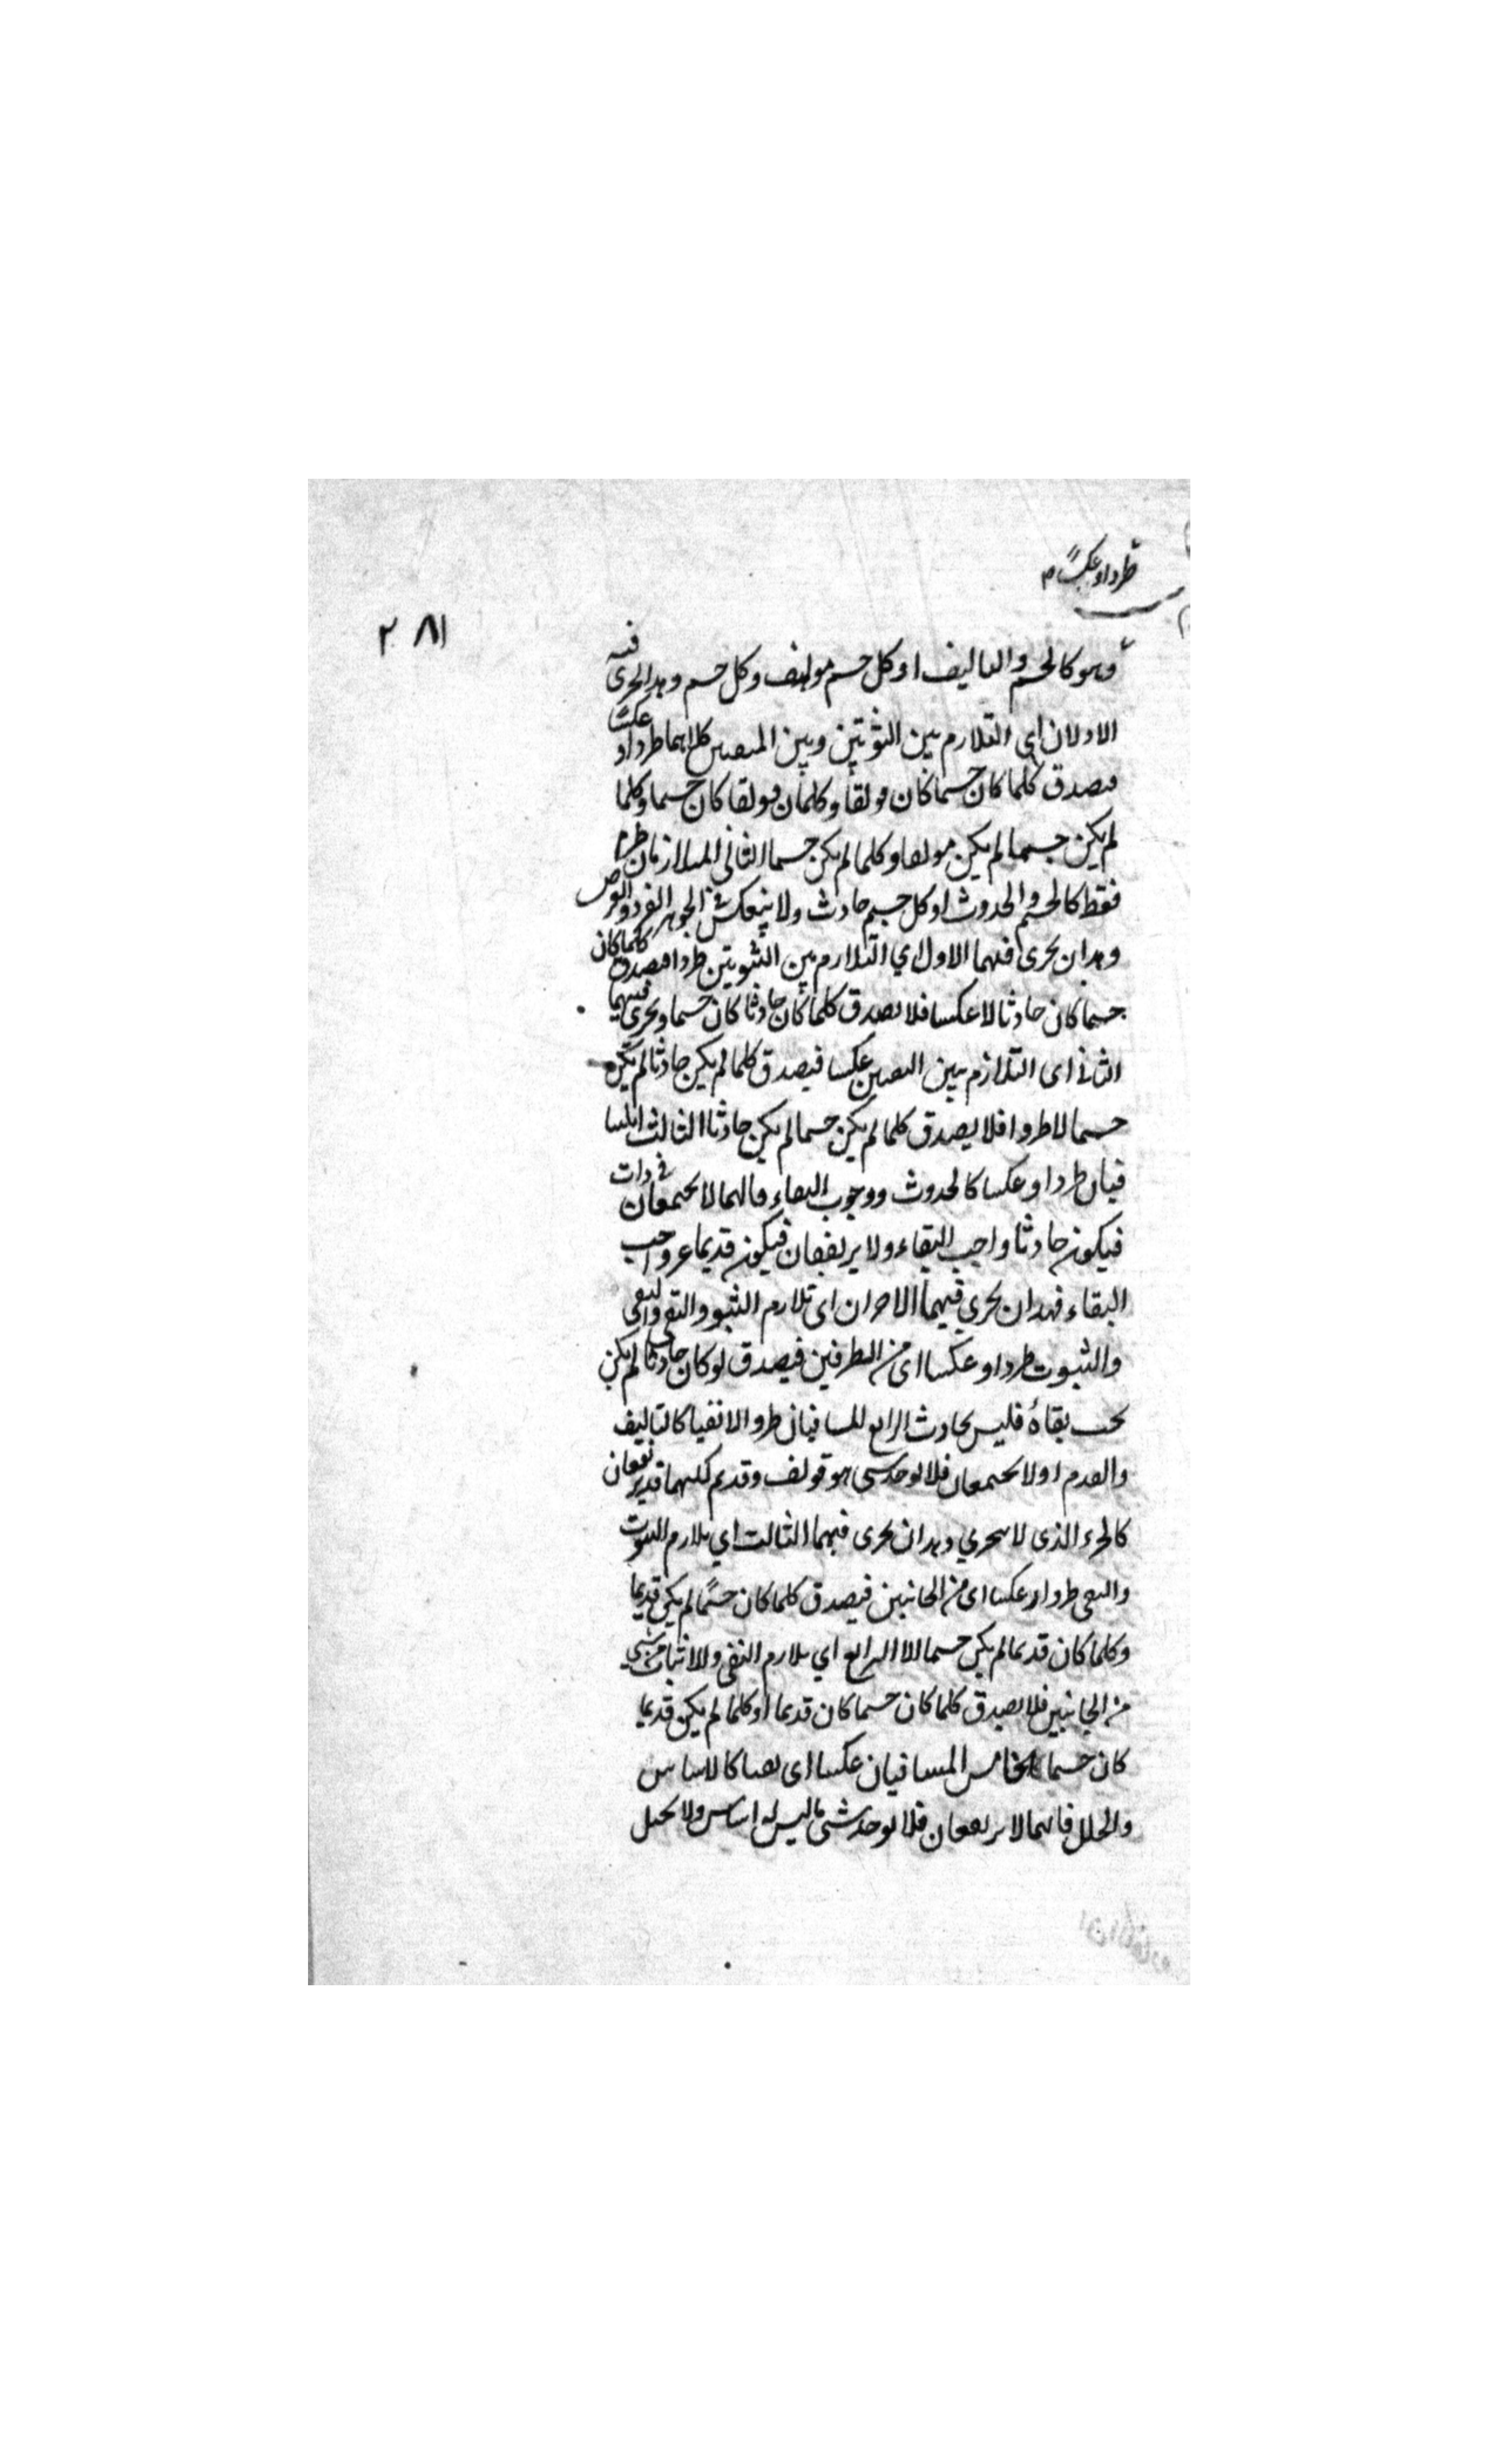 طردا وعكسا م
٢٨١
وهو كالجسم والتاليف اذ كل جسم مولف وكل جسم وهذا يجرى فيه
الاولان اى التلازم بين الثبوتين وبين النفيين كلاهما طردا وعكسا
فيصدق كلما كان جسما كان مولفا وكلما كان مولفا كان جسما وكلما
لم يكن جسما لم يكن مولفا وكلما لم يكن جسما الثانى المتلازمان طردا
فقط كالجسم والحدوث اذ كل جسم حادث ولا ينعكس فى الجوهر الفرد والعرض
وهذان يجرى فيهما الاول اي التلازم بين الثبوتين طردا فيصدق كلما كان
جسما كان حادثا لا عكسا فلا يصدق كلما كان حادثا كان جسما ويجرى فيهما
الثانى اى التلازم بين النفيين عكسا فيصدق كلما لم يكن حادثا لم يكن
جسما لا طردا فلا يصدق كلما لم يكن جسما لم يكن حادثا الثالث المتنا
فيان طردا وعكسا كالحدوث ووجوب البقاء فانهما لا يجتمعان فى ذات
فيكون حادثا واجب البقاء ولا يرتفعان فيكون قديما غير واجب
البقاء فهذان يجرى فيهما الاخران اى تلازم الثبو والنفى والنفى
والثبوت طردا وعكسا اى من الطرفين فيصدق لو كان حادثا لم يكن
يجب بقاؤه فليس بحادث الرابع المتنافيان طردا لا نفيا كالتاليف
والقدم اذ لا يجتمعان فلا يوجد شى هو مولف وقديم لكنهما قد يرتفعان
كالجزء الذى لا يتجزي وهذان يجرى فيهما الثالث اي تلازم الثبوت
والنفى طردا وعكسا اى من الجانبين فيصدق كلما كان جسما لم يكن قديما
وكلما كان قديما لم يكن جسما لا الرابع اي تلازم النفى والاثبات من شي
من الجانبين فلا يصدق كلما كان جسما كان قديما او كلما لم يكن قديما
كان جسما الخامس المتنافيان عكسا اى نفيا كالاساس
والخلل فانهما لا يرتفعان فلا يوجد شى ما ليس له اساس ولا يختل